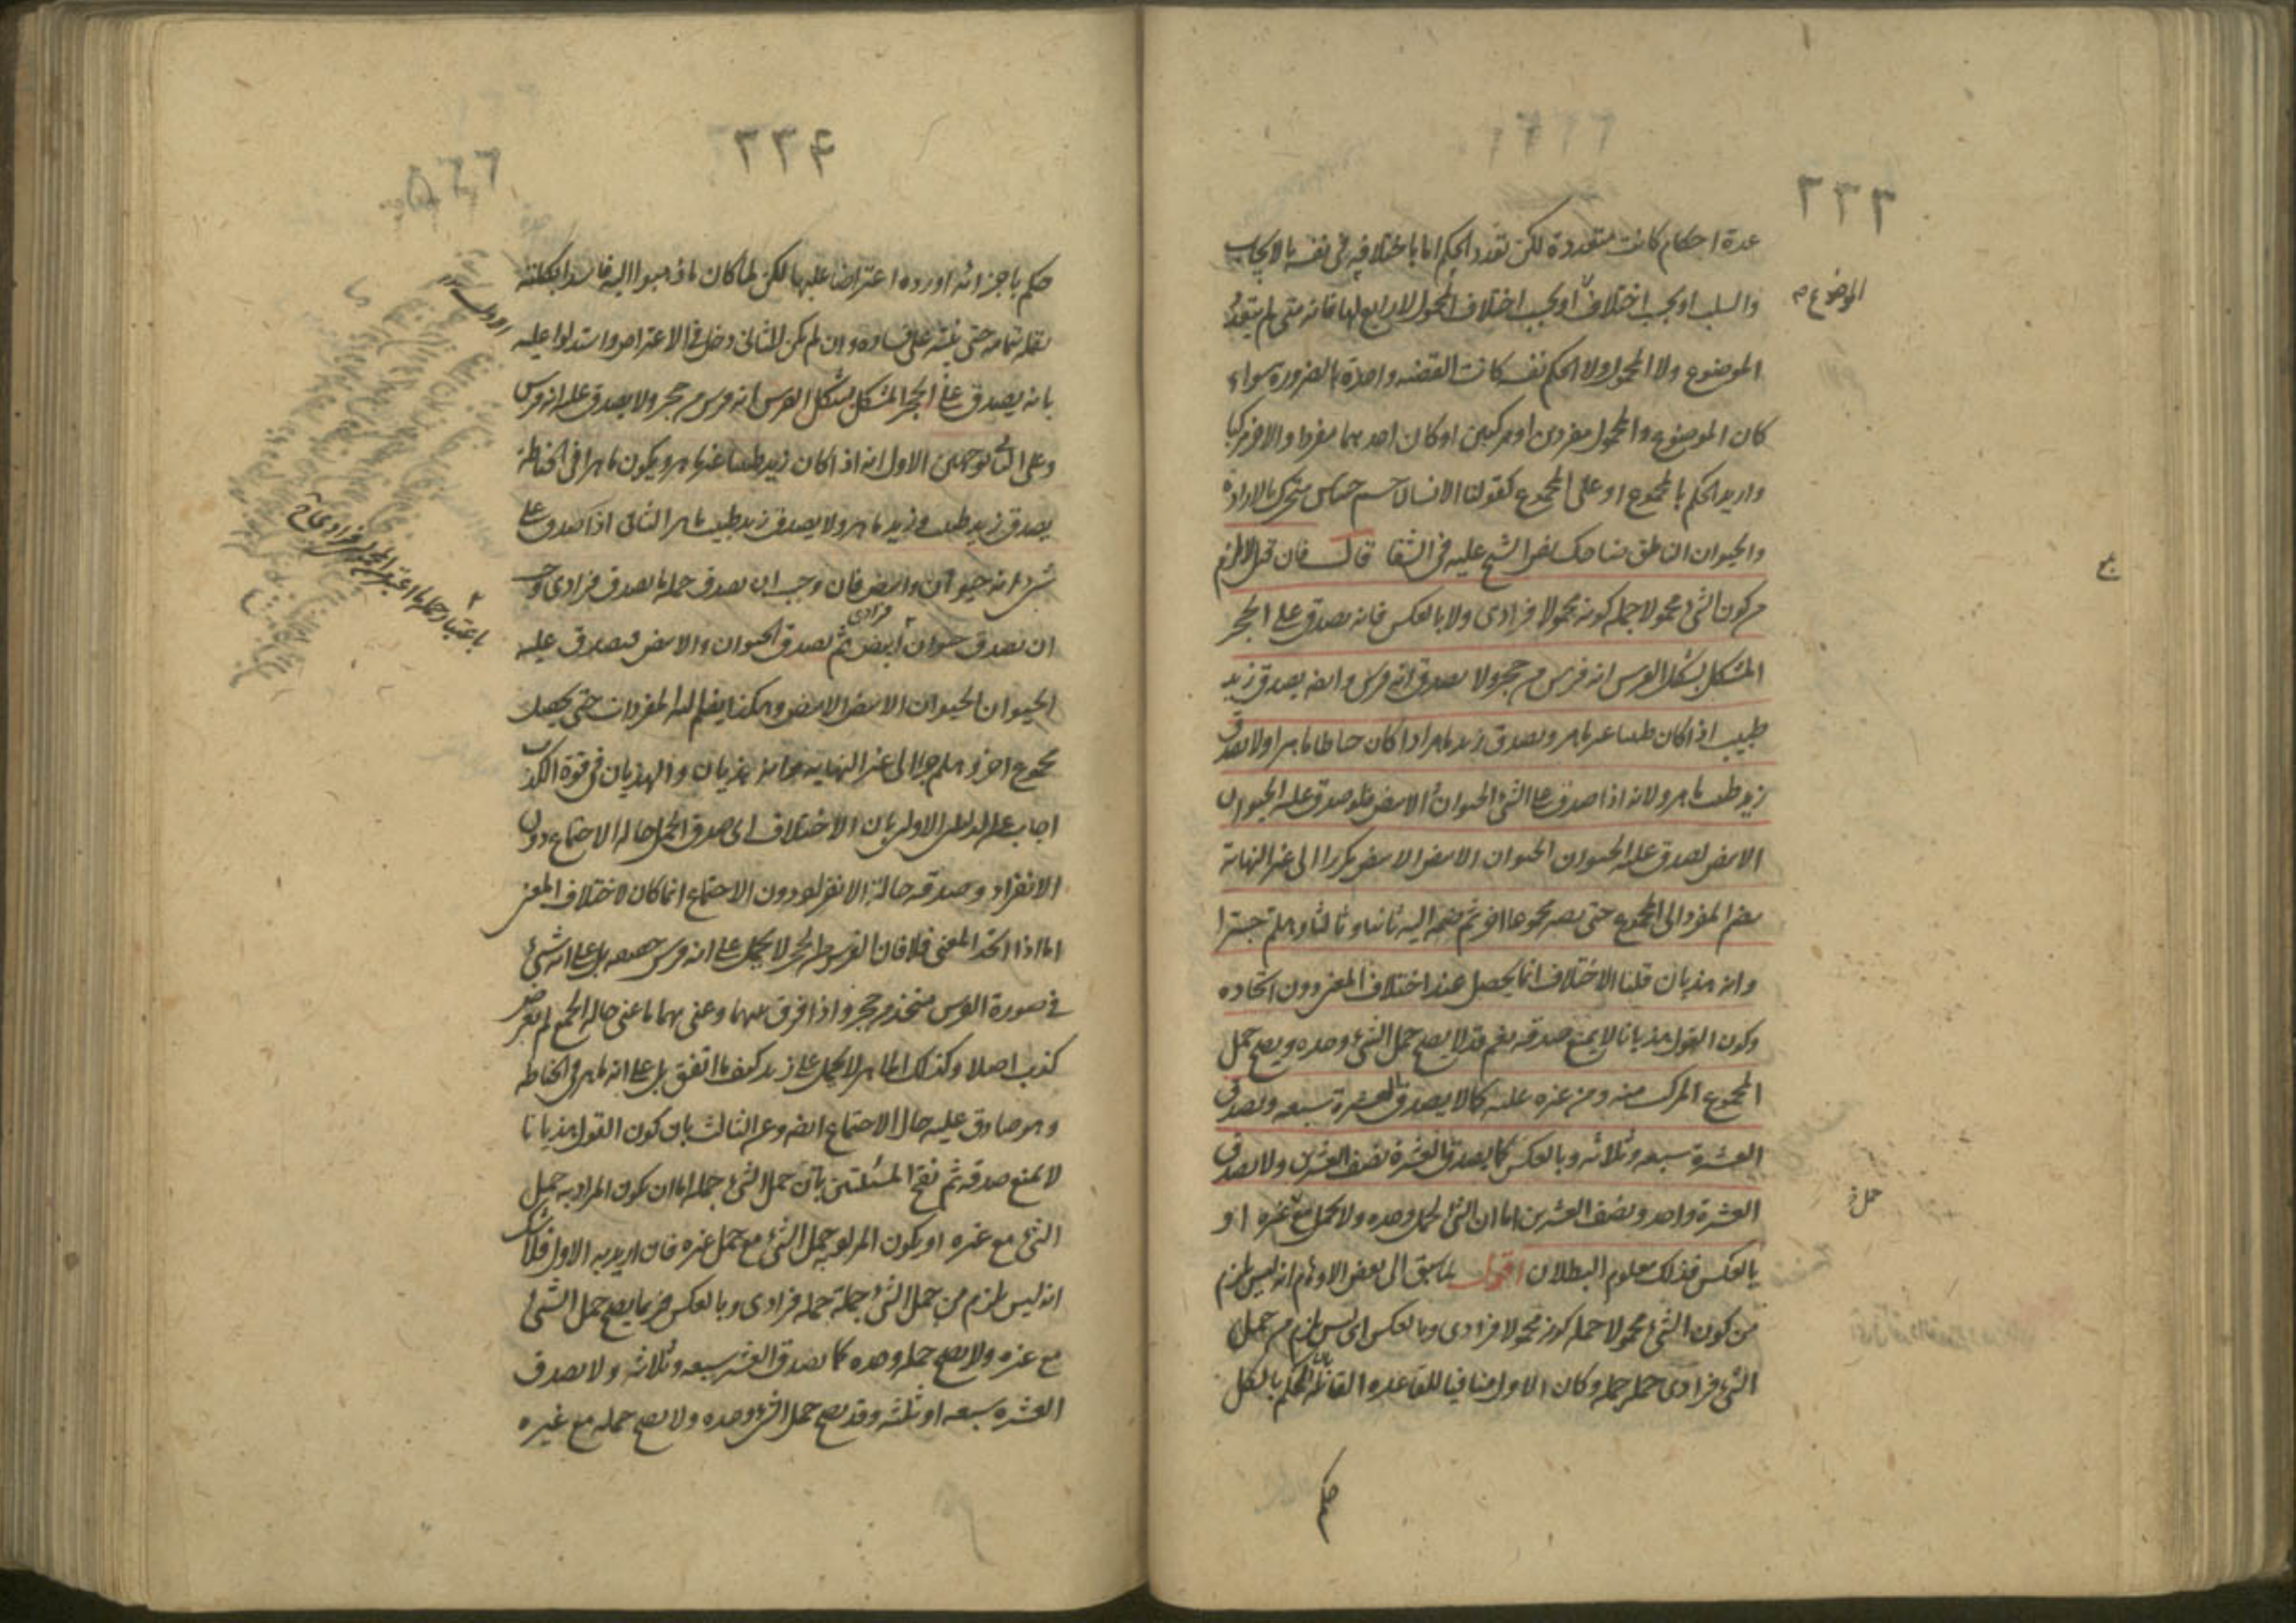 ٢٣٣
عدة احكام كانت متعددة لكن تعدد الحكم اما باختلافه فى نفسه بالايجاب
والسلب او بحسب اختلاف او بحسب اختلاف المحمول لا رابع لها فانه متى لم يتعدد
الموضوع
الموضوع ولا المحمول ولا الحكم نفسه كانت القضيه واحدة بالضرورة سواء
كان الموضوع والمحمول مفردين او مركبين او كان احدهما مفردا والاخر مركبا
واريد الحكم بالمجموع او على المجموع كقولنا الانسان جسم حساس متحرك بالارادة
والحيوان الناطق ضاحك نص الشيخ عليه فى الشفا قال فان قيل لا يلزم
من كون الشئ محمولا جملة كونه محمولا فرادى ولا بالعكس فانه يصدق على الحجر
المشكل بشكل الفرس انه فرس من حجر ولا يصدق انه فرس وايضه يصدق زيد
طبيب اذا كان طبيبا غير ماهر ويصدق زيد ماهر اذا كان خياطا ماهرا ولا يصدق
زيد طبيب ماهر ولانه اذا صدق على الشئ الحيوان الابيض فلو صدق عليه الحيوان
الابيض لصدق عليه الحيوان الحيوان الابيض الابيض مكررا الى غير النهاية
بضم المفرد الى المجموع حتى يصير مجموعا اخر ثم ضمه اليه ثانيا وثالثا وهلم جرا
وانه هذيان قلنا الاختلاف انما يحصل عند اختلاف المعنى دون اتحاده
وكون القول هذيانا لا يمنع صدقه نعم قد لا يصح حمل الشئ وحده ويصح حمل
المجموع المركب منه ومن غيره عليه كما لا يصدق العشرة سبعه ويصدق
العشرة سبعه وثلاثه وبالعكس كما يصدق العشرة نصف العشرين ولا يصدق
العشرة واحد ونصف العشرين اما ان الشئ يحمل وحده ولا يحمل مع غيره او
حمل
بالعكس فذلك معلوم البطلان اقول لما سبق الى بعض الاوهام انه ليس يلزم
من كون الشئ محمولا جملة كونه محمولا فرادى وبالعكس اى ليس يلزم من حمل
الشئ فرادى حمله جملة وكان الاول منافيا للقاعده القائله الحكم بالكل
حكم
٢٣٤
حكم باجزائه اورده اعتراضا عليها لكن لما كان ما ذهبوا اليه فاسدا بكليته
نقله بتمامه حتى ينبه على فساده وان لم يكن للثانى دخل فى الاعتراض واستدلوا عليه
بانه يصدق على الحجر المشكل بشكل الفرس انه فرس من حجر ولا يصدق عليه انه فرس
وعلى الثانى بوجهين الاول انه اذا كان زيد طبيبا غير ماهر ويكون ماهرا فى الخياطة
يصدق زيد طبيب وزيد ماهر ولا يصدق زيد طبيب ماهر الثانى اذا صدق على
شئ انه حيوان وابيض فان وجب ان يصدق جملة ما يصدق فرادى وجب
ان يصدق حيوان ابيض ثم يصدق الحيوان والابيض فيصدق عليه
فرادى
الحيوان الحيوان الابيض الابيض وهكذا يضم اليه المفردات حتى يحصل
مجموع اخر وهلم جرا الى غير النهايه وانه هذيان والهذيان فى قوة الكذب
اجاب عن الدليل الاول بان الاختلاف اى صدق الحمل حاله الاجتماع دون
الانفراد وصدقه حالة الانفراد دون الاجتماع انما كان لاختلاف المعنى
اما اذا اتحد المعنى فلا فان الفرس على الحجر لا يحمل على انه فرس حقيقه بل على انه شئ
فى صورة الفرس متخذ من حجر واذا فرق بينهما وعنى بهما ما عنى حاله الجمع لم يعرض
كذب اصلا وكذلك الماهر لا يحمل على زيد كيف ما اتفق بل على انه ماهر فى الخياطه
وهو صادق عليه حال الاجتماع ايضه وعن الثالث بان كون القول هذيانا
لا يمنع صدقه ثم نقح المسئلتين بان حمل الشئ جملة اما ان يكون المراد به حمل
الشئ مع غيره او يكون المراد به حمل الشئ مع حمل غيره فان اريد به الاول فلا شك
انه ليس يلزم من حمل الشئ جملة حمله فرادى وبالعكس فربما يصح حمل الشئ
مع غيره ولا يصح حمله وحده كما يصدق العشره سبعه وثلاثه ولا يصدق
العشره سبعه او ثلثه وقد يصح حمل الشئ وحده ولا يصح حمله مع غيره